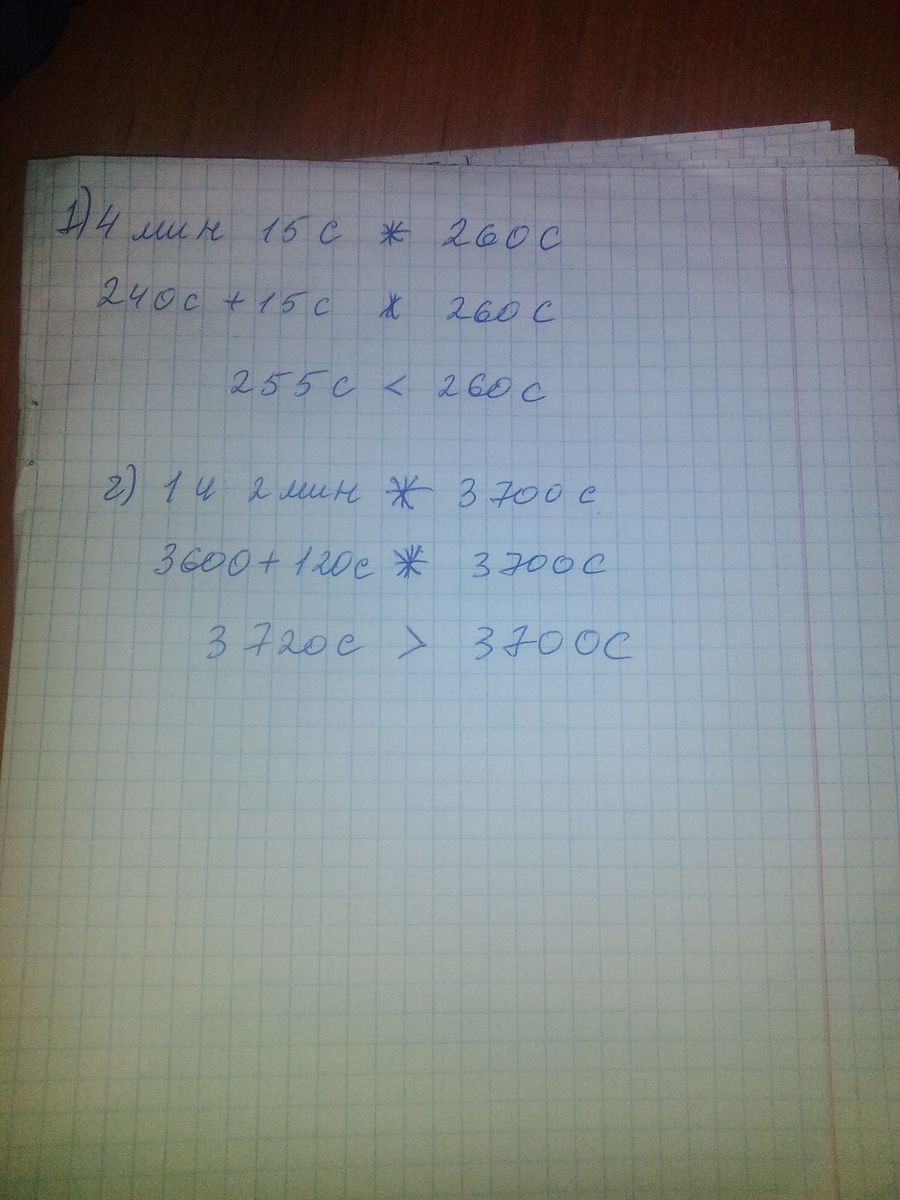 1) 4 мин 15 с * 260 с
240 с + 15 с * 260 с
255 с < 260 с
2) 1 ч 2 мин * 3700 с
3600 + 120 с * 3700 с
3720 с > 3700 с